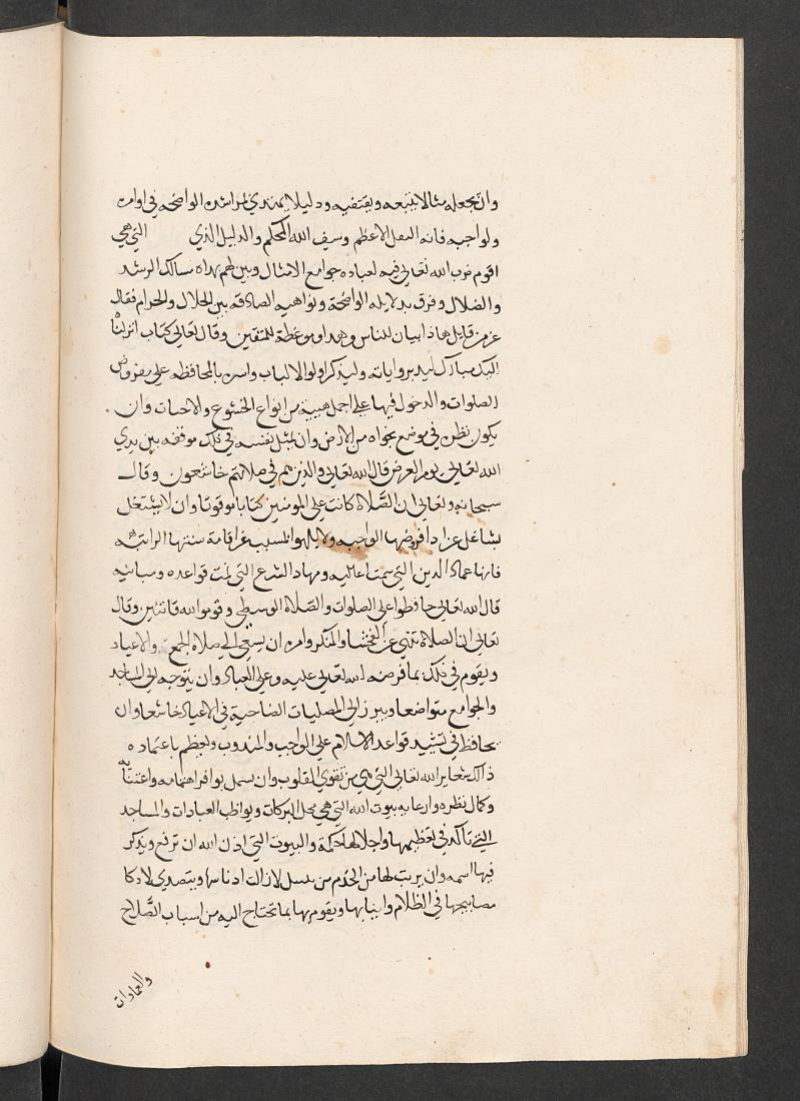 وان يجعله مثالا يتبعه ويقتفيه ودليلا يهتدي لمراشده الواضحه في اوامره
ولواجبه فانه الثقل الاعظم وسيف الله المحكم والدليل الذي التي هي
اقوم ضرب الله تعالى فيه لعباده جوامع الامثال وبين لهم بهداه مسالك الرشد
والضلال وفرق بدلايله الواضحة ونواهيه الصادقه بين الحلال والحرام فقال
عز من قايل هاذا بيان للناس وهدا وموعظة للمتقين وقال تعالى كتاب انزلناه
اليك مبارك ليدبروا اياته وليذكر اولوا الالباب وامره بالمحافظه على مفروض
الصلوات والدخول فيها على اجمل هيية من انواع الخشوع والاخبات وان
يكون نظره في موضع نجواه من الارض وان يمثل لنفسه في ذلك موقفه بين يدي
الله تعالى يوم العرض قال الله تعالى والذين هم في صلاتهم خاشعون وقال
سبحانه وتعالى ان الصلاة كانت على المومنين كتابا موقوتا وان لا يشتغل
بشاغل عن ادا فروضها الواجبه ولا يلهوا بسبب عن اقامة سننها الراتبه
فانها عماد الدين التي سمت اعاليه ومهاد الشرع التي نمت قواعده ومبانيه
قال الله تعالى حافظوا على الصلوات والصلاة الوسطى وقوموا لله قانتين وقال
تعالى ان الصلاة تنهى عن الفحشا والمنكر وامره ان يسعى الى صلاة الجمع والاعياد
ويقوم في ذلك بما فرضه الله تعالى عليه وعلى العباد وان يتوجه الى المساجد
والجوامع متواضعا ويبرز الى المصليات الضاحية في الاعياد خاشعا وان
يحافظ في تشييد قواعد الاسلام على الواجب والمندوب ويعظم باعتماده
ذالك شعاير الله تعالى التي هي من تقوى القلوب وان يشمل بوافر اهتمامه واعتنائه
وكمال نظره وارعايه بيوت الله التي هي محل البركات ومواطن العبادات والمساجد
التي تاكد في تعظيمها واجلالها حكمه والبيوت التي اذن الله ان ترفع ويذكر
فيها اسمه وان يرتب لها من الخدم من يتبتل لازالت ادناسها ويتصدى لاذكا
مصابيحها في الظلام وايناسها ويقوم لها بما تحتاج اليه من اسباب الصلاح
والعمارات